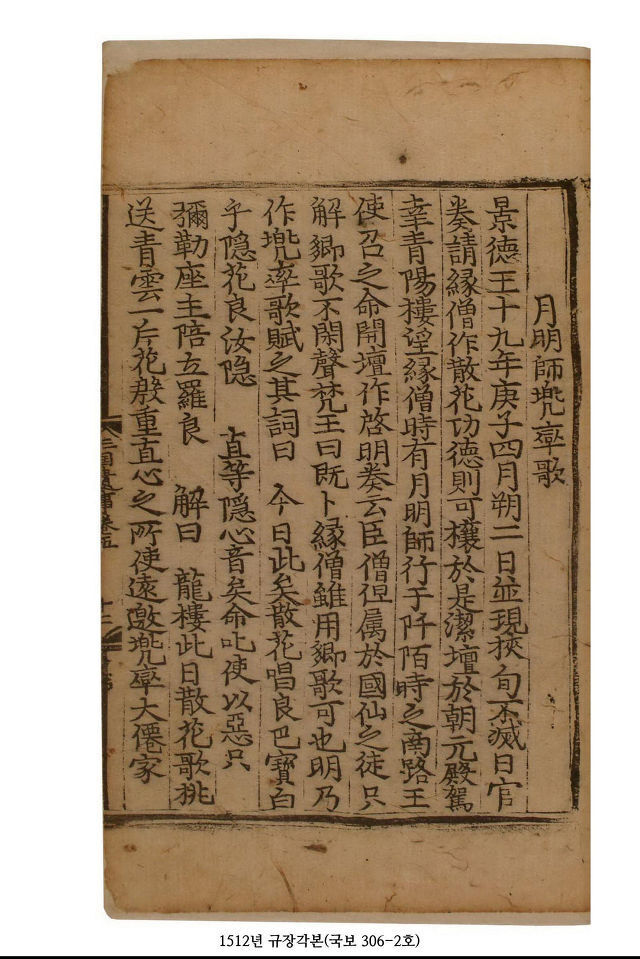 月明師兠率歌
景德王十九年庚子四月朔二日並現挾旬不滅日官
奏請縁僧作散花功德則可禳於是潔壇於朝元殿駕
幸青陽樓望縁僧時有月明師行于阡陌時之南路王
使召之命開壇作啓明奏云臣僧但属於國仙之徒只
解鄉歌不閑聲梵王曰既卜縁僧雖用鄉歌可也明乃
作兠率歌賦之其詞曰 今日此矣散花唱良巴寶白
乎隠花良汝隠 直等隠心音矣命叱使以惡只
彌勒座主陪立羅良 解曰 龍樓此日散花歌挑
送青雲一片花殷重直心之所使遠邀兠率大僊家
三國遺事卷五
1512년 규장각본(국보 306-2호)